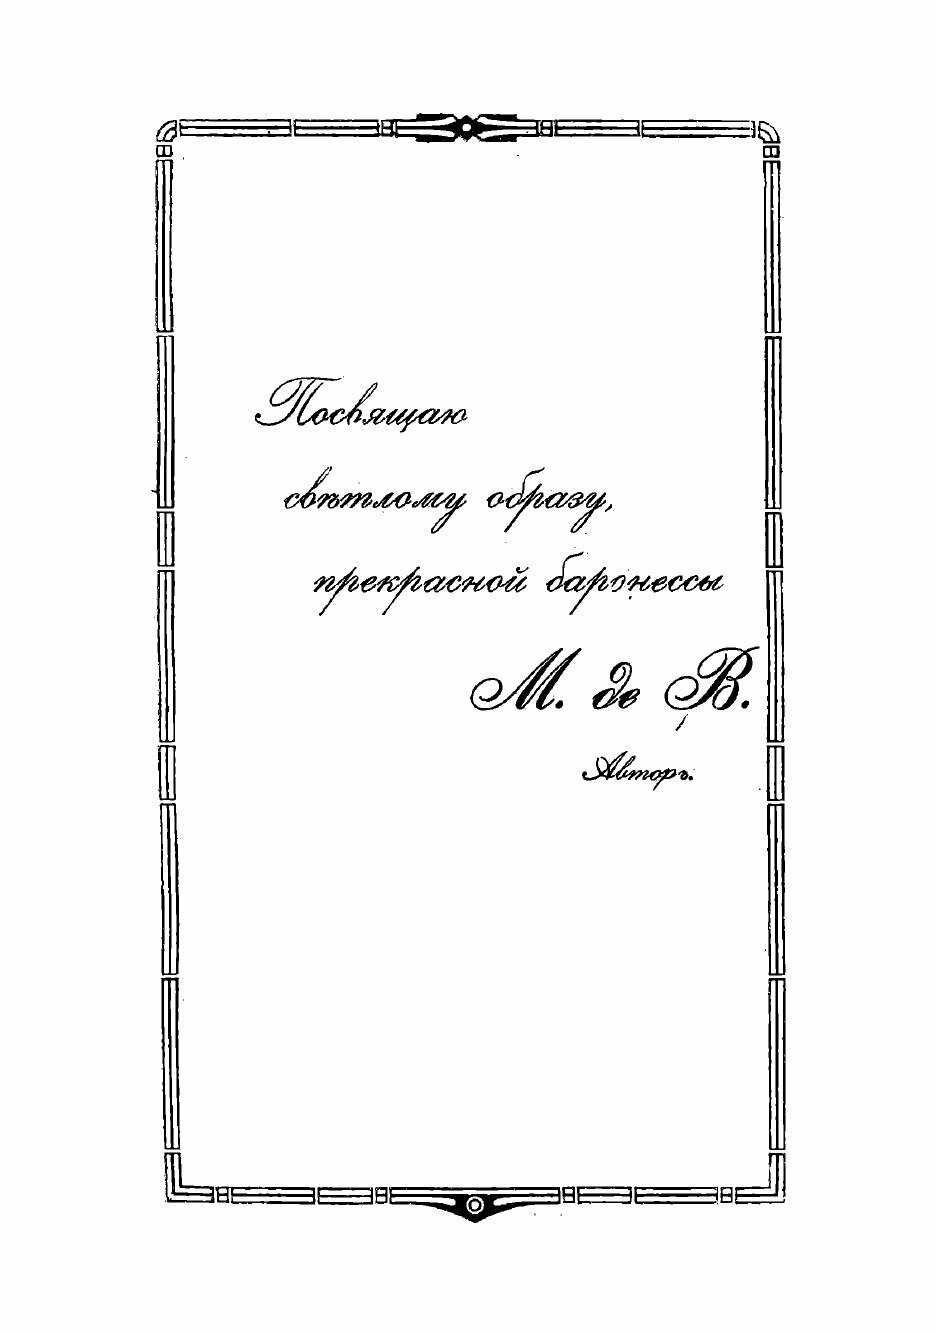 Посвящаю
свѣтлому образу,
прекрасной баронессы
М. де В.
Авторъ.